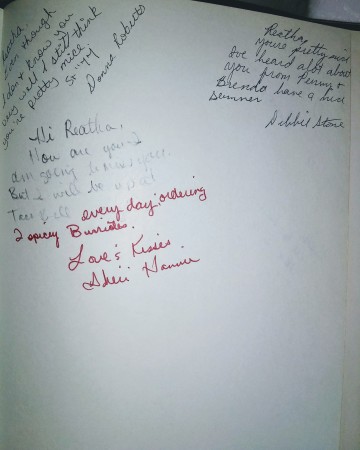 Reatha
Even though
I don't know you
very well I still think
you're pretty nice
Stay
Donna Roberts
Reatha,
You're pretty
I've heard alot about
you from Penny &
Brenda have a nice
Summer
Debbie Stone
Hi Reatha,
How are you?
am going to miss you.
But I will be up at
Taco Bell every day ordering
2 spicy Burritos.
Love's Kisses
Sheri